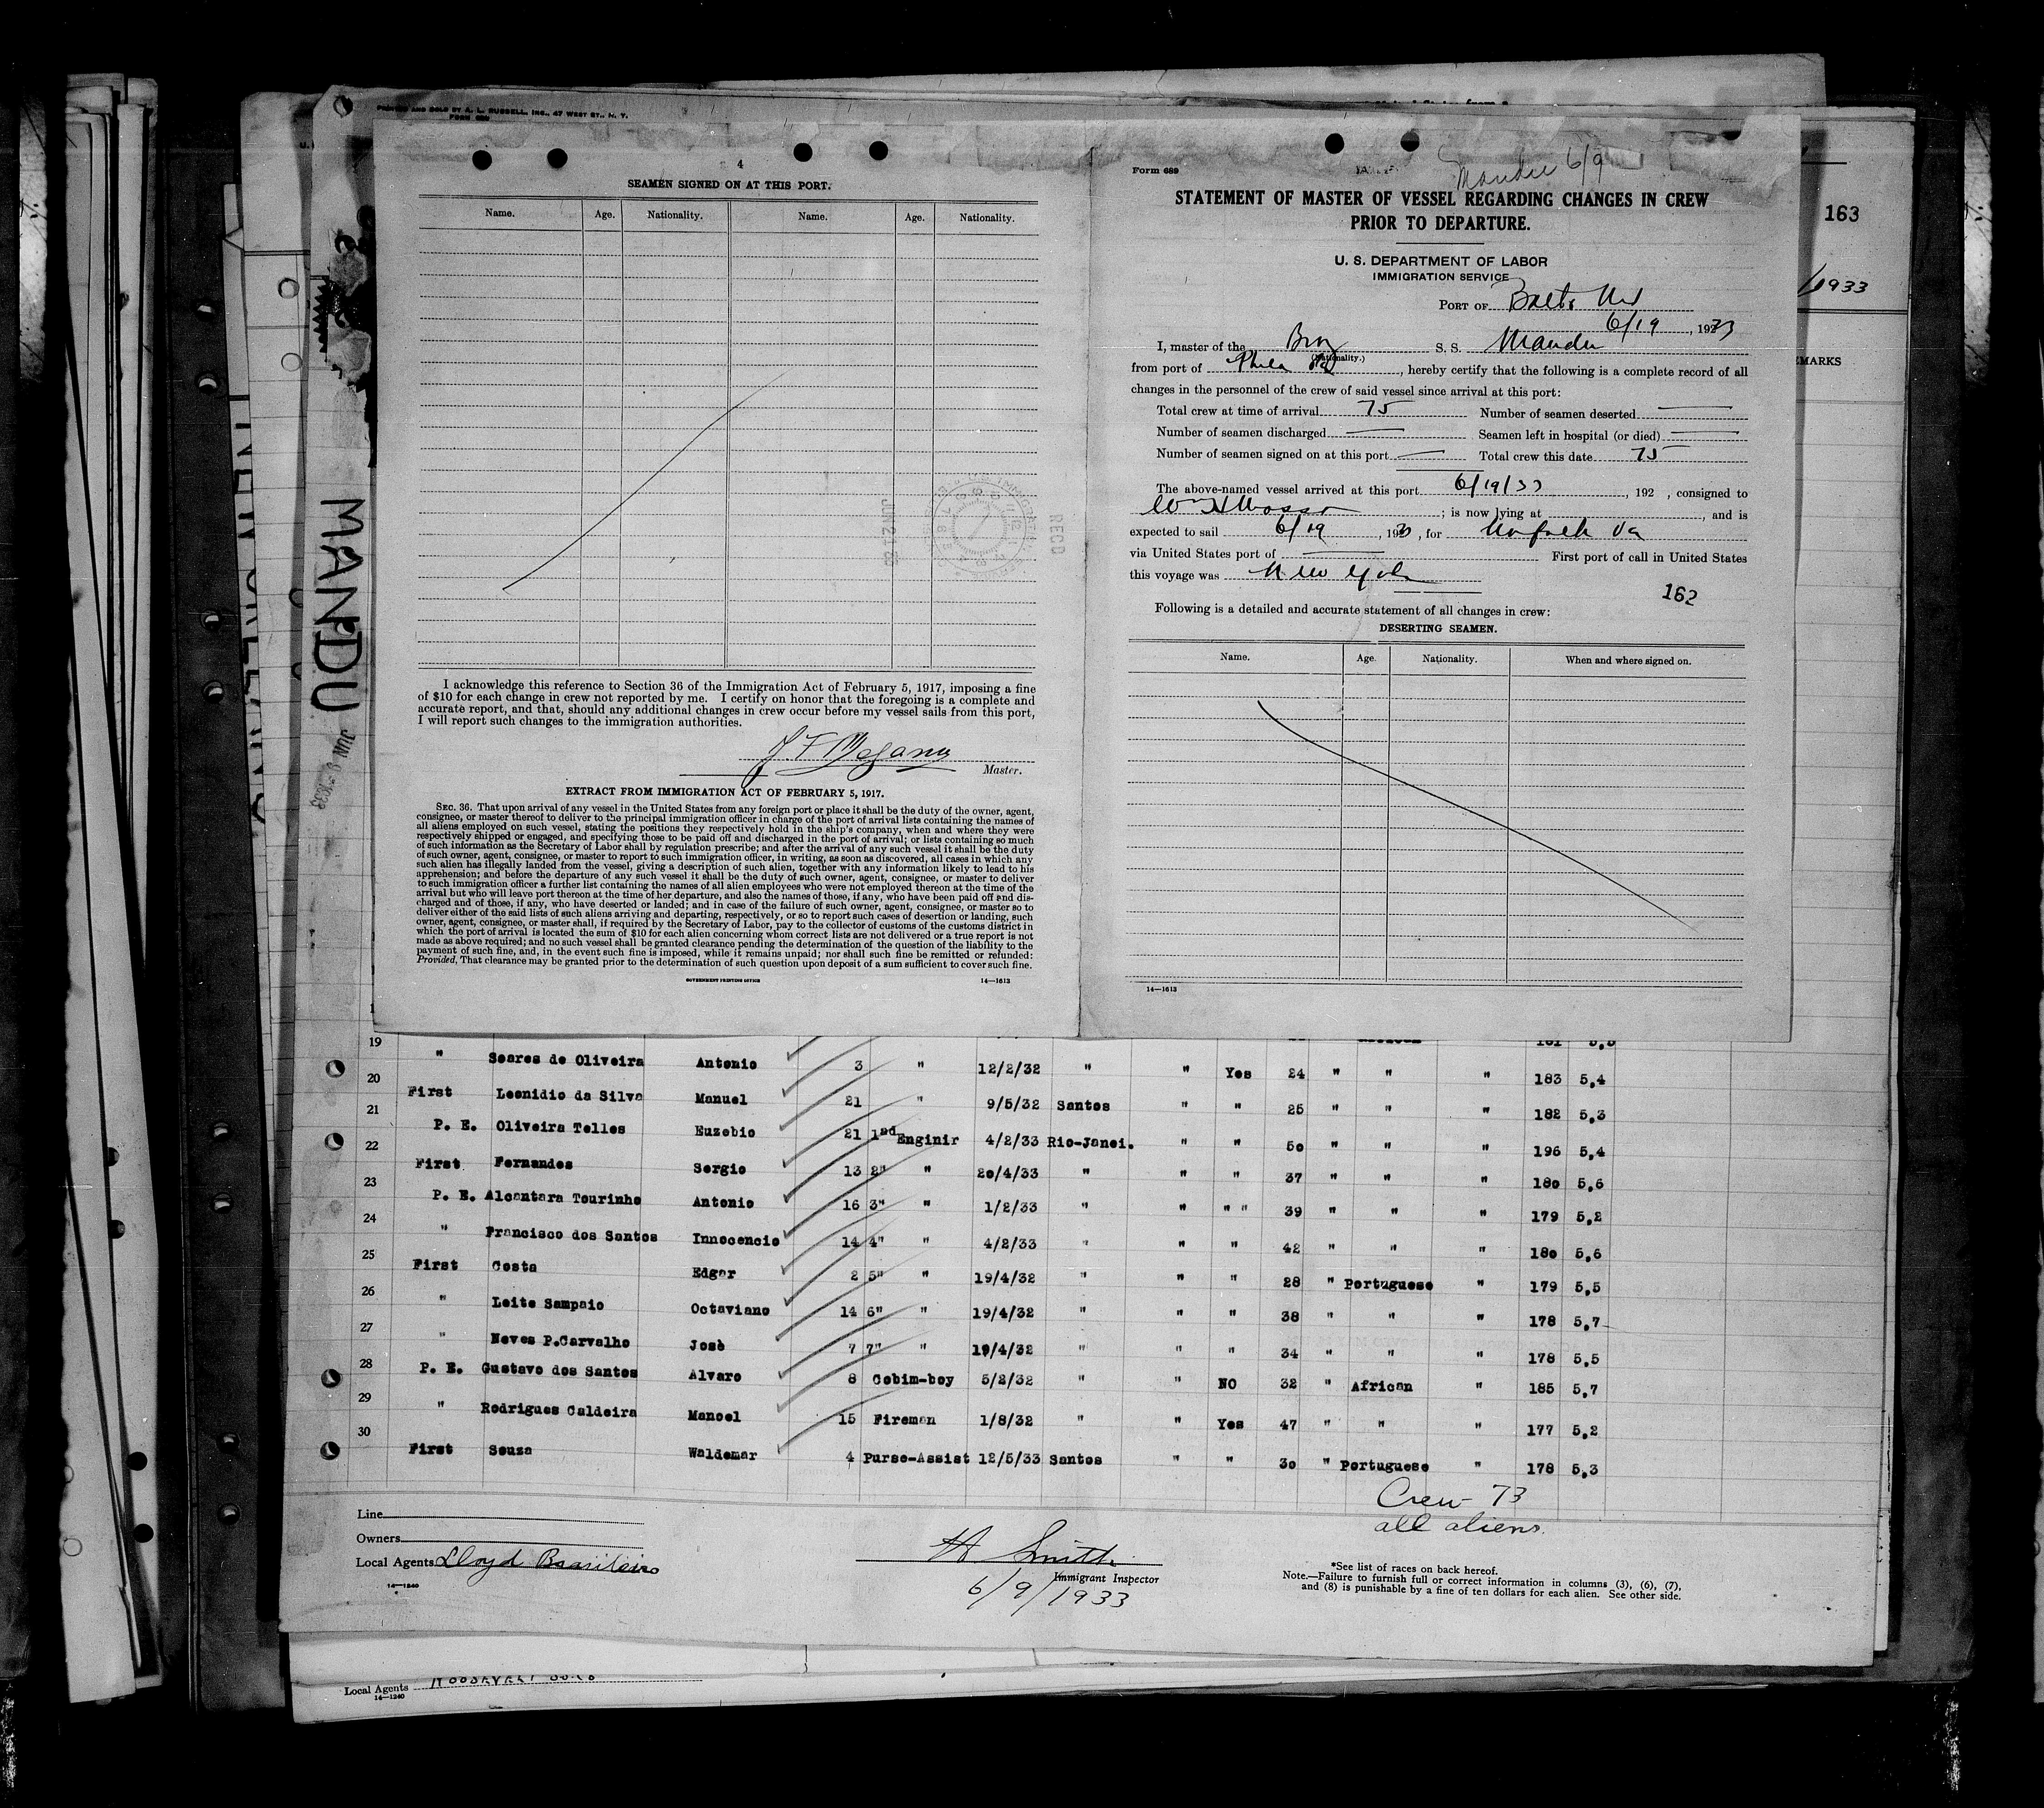 PRINTED AND SOLD BY A. L. RUSSELL, INC., 47 WEST ST., N. Y.
FORM 689
4
SEAMEN SIGNED ON AT THIS PORT.
Name. Age. Nationality. Name. Age. Nationality.
RECD
JUN 21 33
I acknowledge this reference to Section 36 of the Immigration Act of February 5, 1917, imposing a fine
of $10 for each change in crew not reported by me. I certify on honor that the foregoing is a complete and
accurate report, and that, should any additional changes in crew occur before my vessel sails from this port,
I will report such changes to the immigration authorities.
Master.
EXTRACT FROM IMMIGRATION ACT OF FEBRUARY 5, 1917.
SEC. 36. That upon arrival of any vessel in the United States from any foreign port or place it shall be the duty of the owner, agent,
consignee, or master thereof to deliver to the principal immigration officer in charge of the port of arrival lists containing the names of
all aliens employed on such vessel, stating the positions they respectively hold in the ship's company, when and where they were
respectively shipped or engaged, and specifying those to be paid off and discharged in the port of arrival; or lists containing so much
of such information as the Secretary of Labor shall by regulation prescribe; and after the arrival of any such vessel it shall be the duty
of such owner, agent, consignee, or master to report to such immigration officer, in writing, as soon as discovered, all cases in which any
such alien has illegally landed from the vessel, giving a description of such alien, together with any information likely to lead to his
apprehension; and before the departure of any such vessel it shall be the duty of such owner, agent, consignee, or master to deliver
to such immigration officer a further list containing the names of all alien employees who were not employed thereon at the time of the
arrival but who will leave port thereon at the time of her departure, and also the names of those, if any, who have been paid off and dis-
charged and of those, if any, who have deserted or landed; and in case of the failure of such owner, agent, consignee, or master so to
deliver either of the said lists of such aliens arriving and departing, respectively, or so to report such cases of desertion or landing, such
owner, agent, consignee, or master shall, if required by the Secretary of Labor, pay to the collector of customs of the customs district in
which the port of arrival is located the sum of $10 for each alien concerning whom correct lists are not delivered or a true report is not
made as above required; and no such vessel shall be granted clearance pending the determination of the question of the liability to the
payment of such fine, and, in the event such fine is imposed, while it remains unpaid; nor shall such fine be remitted or refunded:
Provided, That clearance may be granted prior to the determination of such question upon deposit of a sum sufficient to cover such fine.
GOVERNMENT PRINTING OFFICE 14—1613
Form 689
Mandu 6/9
STATEMENT OF MASTER OF VESSEL REGARDING CHANGES IN CREW
PRIOR TO DEPARTURE.
U. S. DEPARTMENT OF LABOR
IMMIGRATION SERVICE
PORT OF Balto Md
6/19, 1933
I, master of the Braz S. S. Mandu
(Nationality.)
from port of Phila Pa, hereby certify that the following is a complete record of all
changes in the personnel of the crew of said vessel since arrival at this port:
Total crew at time of arrival 75 Number of seamen deserted —
Number of seamen discharged — Seamen left in hospital (or died) —
Number of seamen signed on at this port — Total crew this date 75
The above-named vessel arrived at this port 6/19/33, 192 , consigned to
; is now lying at , and is
expected to sail 6/19, 193, for Norfolk Va
via United States port of — First port of call in United States
this voyage was New York
162
Following is a detailed and accurate statement of all changes in crew:
DESERTING SEAMEN.
Name. Age. Nationality. When and where signed on.
14—1613
163
1933
MARKS
MANDU
JUN 9 1933
19 " Soares de Oliveira Antonio 3 " 12/2/32 " " Yes 24 " " " 183 5,4
20 First Leonidio da Silva Manuel 21 " 9/5/32 Santos " " 25 " " " 182 5,3
21 P. E. Oliveira Telles Euzebio 21 1nd Enginir 4/2/33 Rio-Janei. " " 50 " " " 196 5,4
22 First Fernandes Sergio 13 2" " 20/4/33 " " " 37 " " " 180 5,6
23 P. E. Alcantara Tourinho Antonio 16 3" " 1/2/33 " " " " 39 " " " 179 5,2
24 " Francisco dos Santos Innocencio 14 4" " 4/2/33 " " " 42 " " " 180 5,6
25 First Costa Edgar 2 5" " 19/4/32 " " " 28 " Portuguese " 179 5,5
26 " Leite Sampaio Octaviano 14 6" " 19/4/32 " " " 38 " " " 178 5,7
27 " Neves P.Carvalho Josè 7 7" " 19/4/32 " " " 34 " " " 178 5,5
28 P. E. Gustavo dos Santos Alvaro 8 Cobim-boy 5/2/32 " " NO 32 " African " 185 5,7
29 " Rodrigues Caldeira Manoel 15 Fireman 1/8/32 " " Yes 47 " " " 177 5,2
30 First Souza Waldemar 4 Purse-Assist 12/5/33 Santos " " 30 " Portuguese " 178 5,3
Crew 73
all aliens.
Line
Owners
Local Agents Lloyd Brasileiro
14—1240
H Smith
Immigrant Inspector
6/9/1933
*See list of races on back hereof.
Note.—Failure to furnish full or correct information in columns (3), (6), (7),
and (8) is punishable by a fine of ten dollars for each alien. See other side.
Local Agents
14—1240